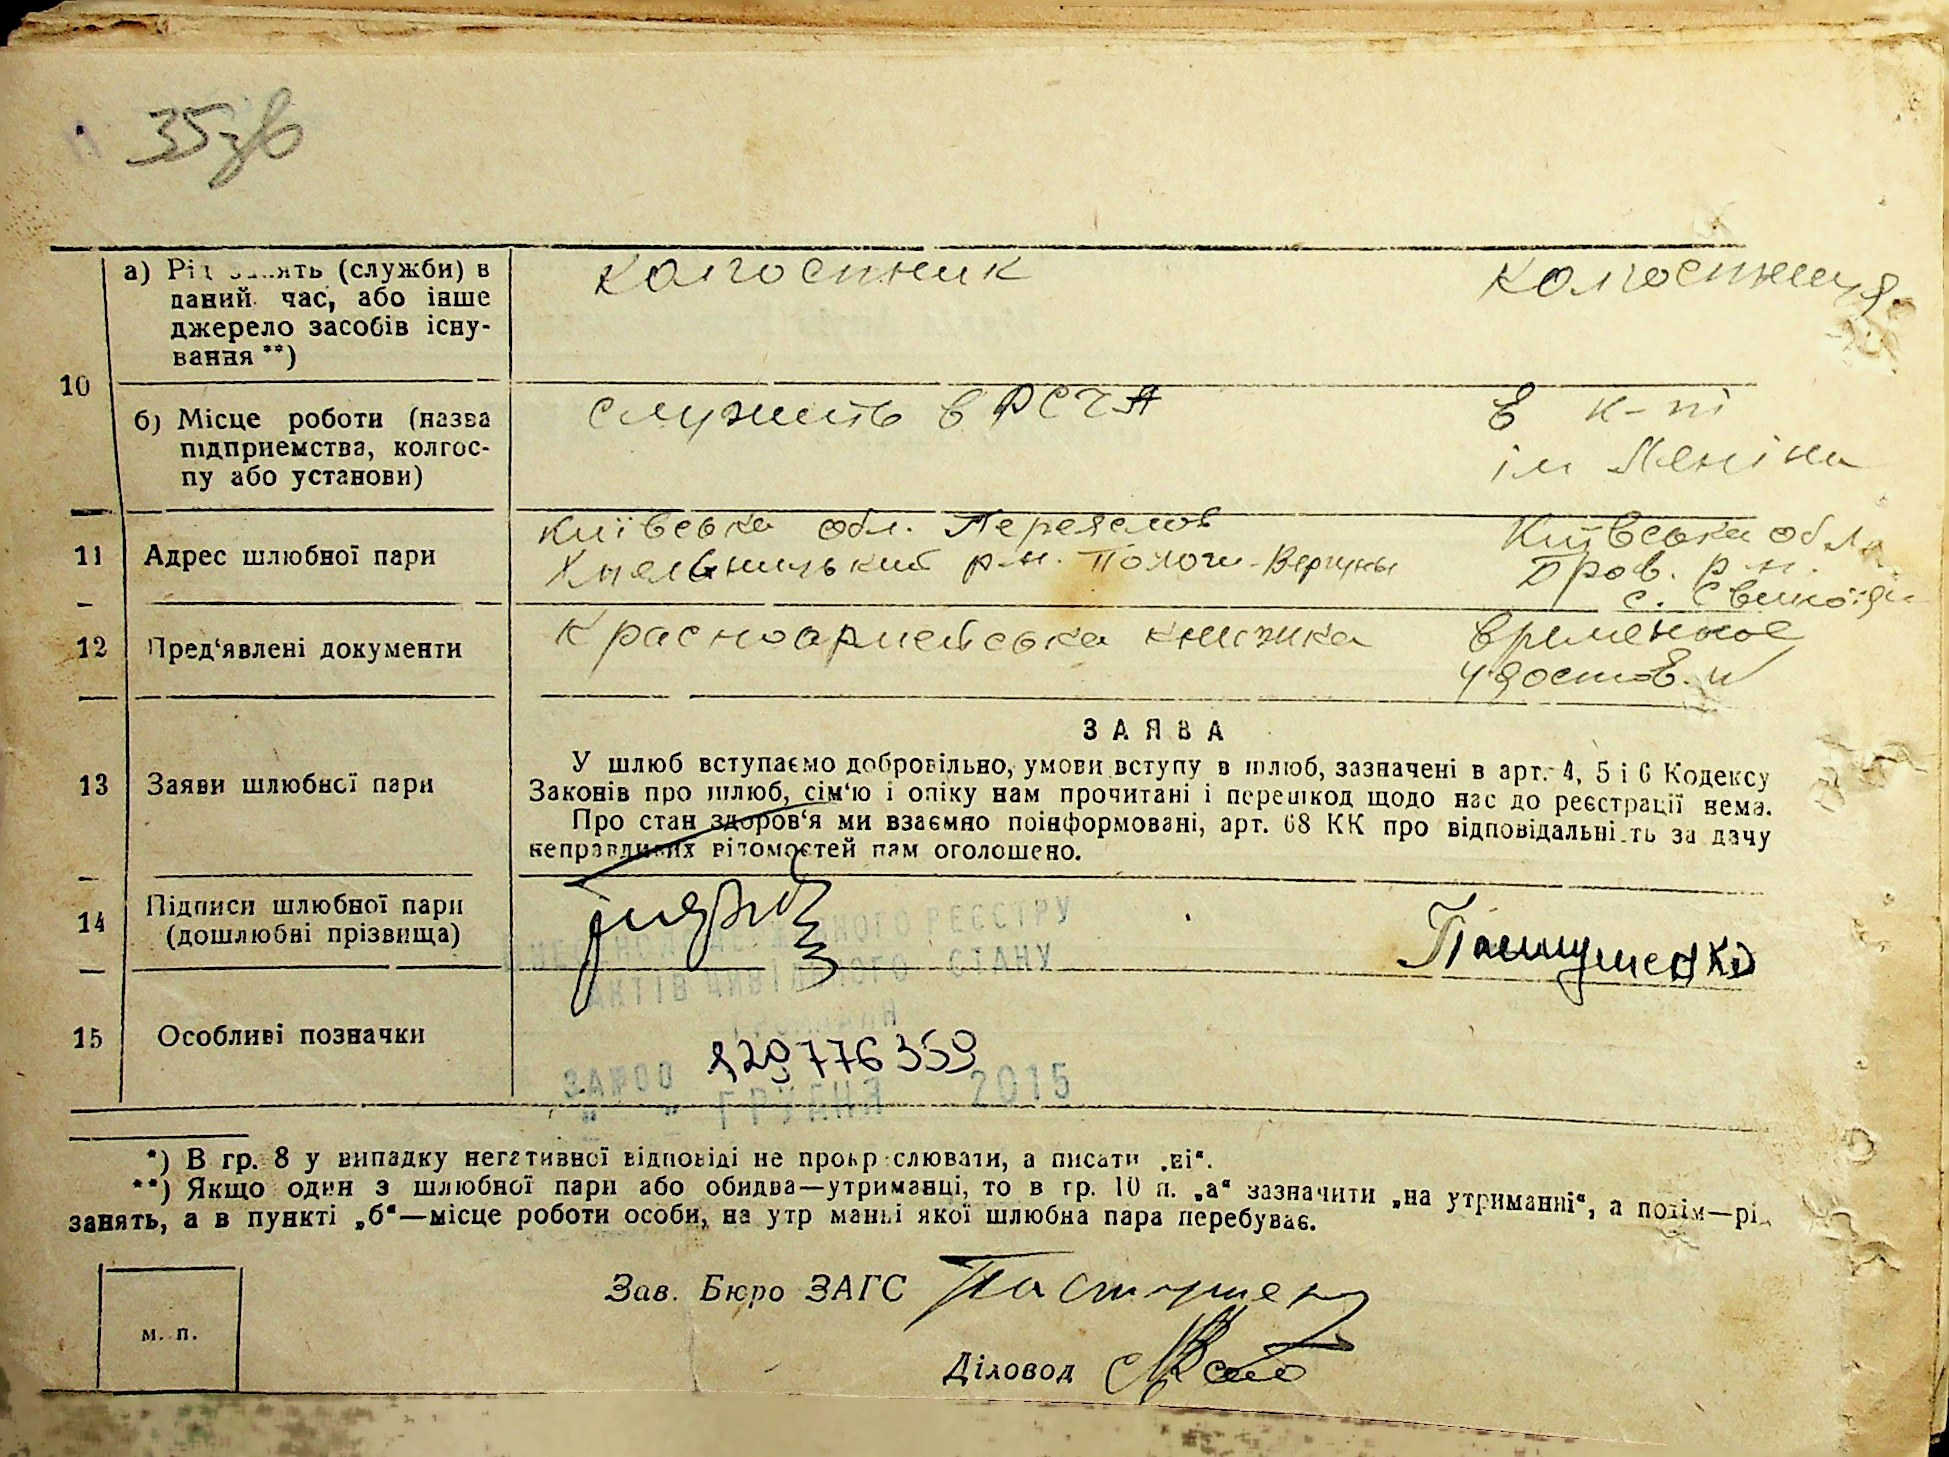 35зв
10
а) Рід занять (служби) в
даний час, або інше
джерело засобів існу-
вання **)
колгоспник
колгоспниця
б) Місце роботи (назва
підприемства, колгос-
пу або установи)
служить в РСЧА
в к-пі
ім Леніна
11 Адрес шлюбної пари
Київська обл. Переяслов
Хмельницький р-н. Пологи-Вергуны
Київська обл
Бров. р-н.
с. Свиноїди
12 Пред'явлені документи
Красноармейська книжка
временное
удостов.
13 Заяви шлюбної пари
ЗАЯВА
У шлюб вступаємо добровільно, умови вступу в шлюб, зазначені в арт. 4, 5 і 6 Кодексу
Законів про шлюб, сім'ю і опіку нам прочитані і перешкод щодо нас до реєстрації нема.
Про стан здоров'я ми взаємно поінформовані, арт. 68 КК про відповідальність за дачу
неправдивих відомостей нам оголошено.
14 Підписи шлюбної пари
(дошлюбні прізвища)
РЕЄСТРУ
АКТІВ ЦИВІЛЬНОГО СТАНУ
ГРОМАДЯН
15 Особливі позначки
129776359
" " ГРУДНЯ 2015
*) В гр. 8 у випадку негативної відповіді не прокреслювати, а писати „ні“.
**) Якщо один з шлюбної пари або обидва—утриманці, то в гр. 10 п. „а“ зазначити „на утриманні“, а потім—рід
занять, а в пункті „б“—місце роботи особи, на утриманні якої шлюбна пара перебуває.
Зав. Бюро ЗАГС
м. п.
Діловод